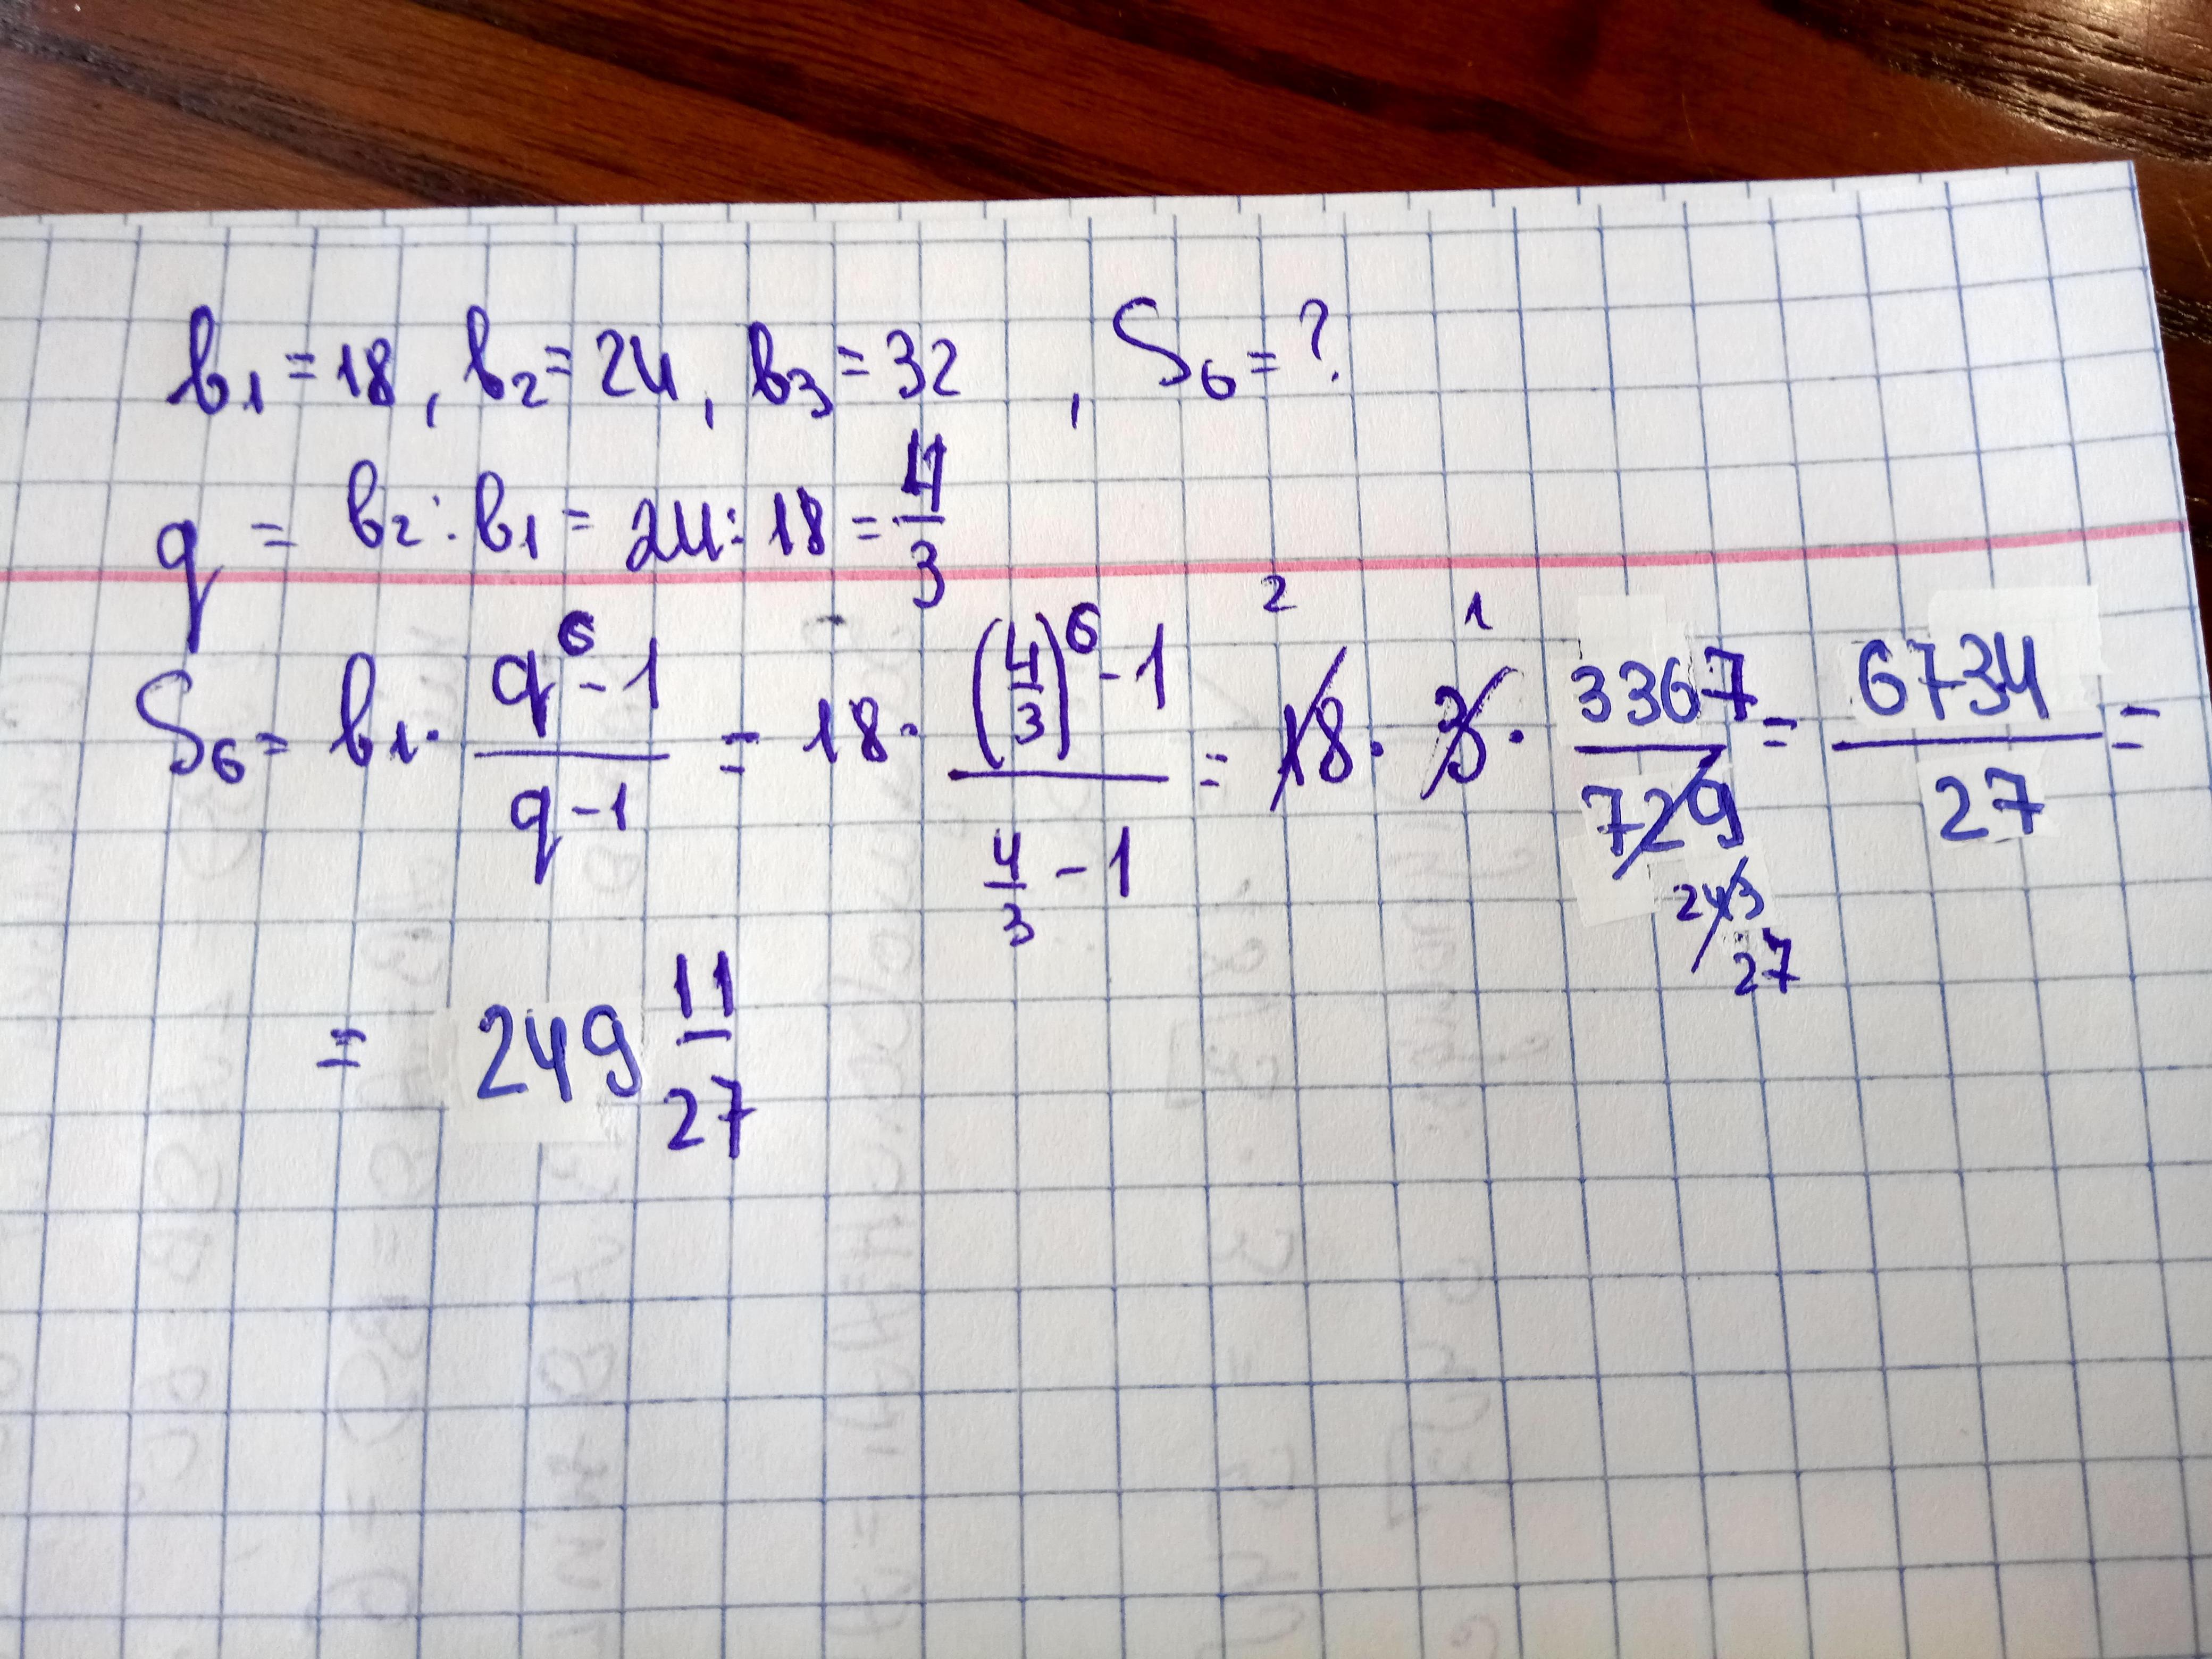 b₁ = 18, b₂ = 24, b₃ = 32 , S₆ = ?
q = b₂ : b₁ = 24 : 18 = 4/3
S₆ = b₁ · (q⁶ - 1)/(q - 1) = 18 · ((4/3)⁶ - 1)/(4/3 - 1) = 18 2 · 3 1 · 3367/729 243 27 = 6734/27 =
= 249 11/27